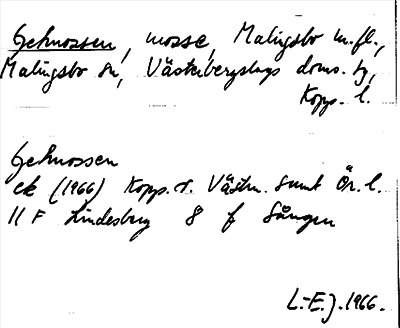 Geknossen, mosse, Malingsbo m.fl.,
Malingsbo sn, Västerbergslags doms. tg,
Kopp. l.
Geknossen
ek (1966) Kopp. o. Västm. samt Ör. l.
11 F Lindesberg 8 f Sången
L.-E. J. 1966.